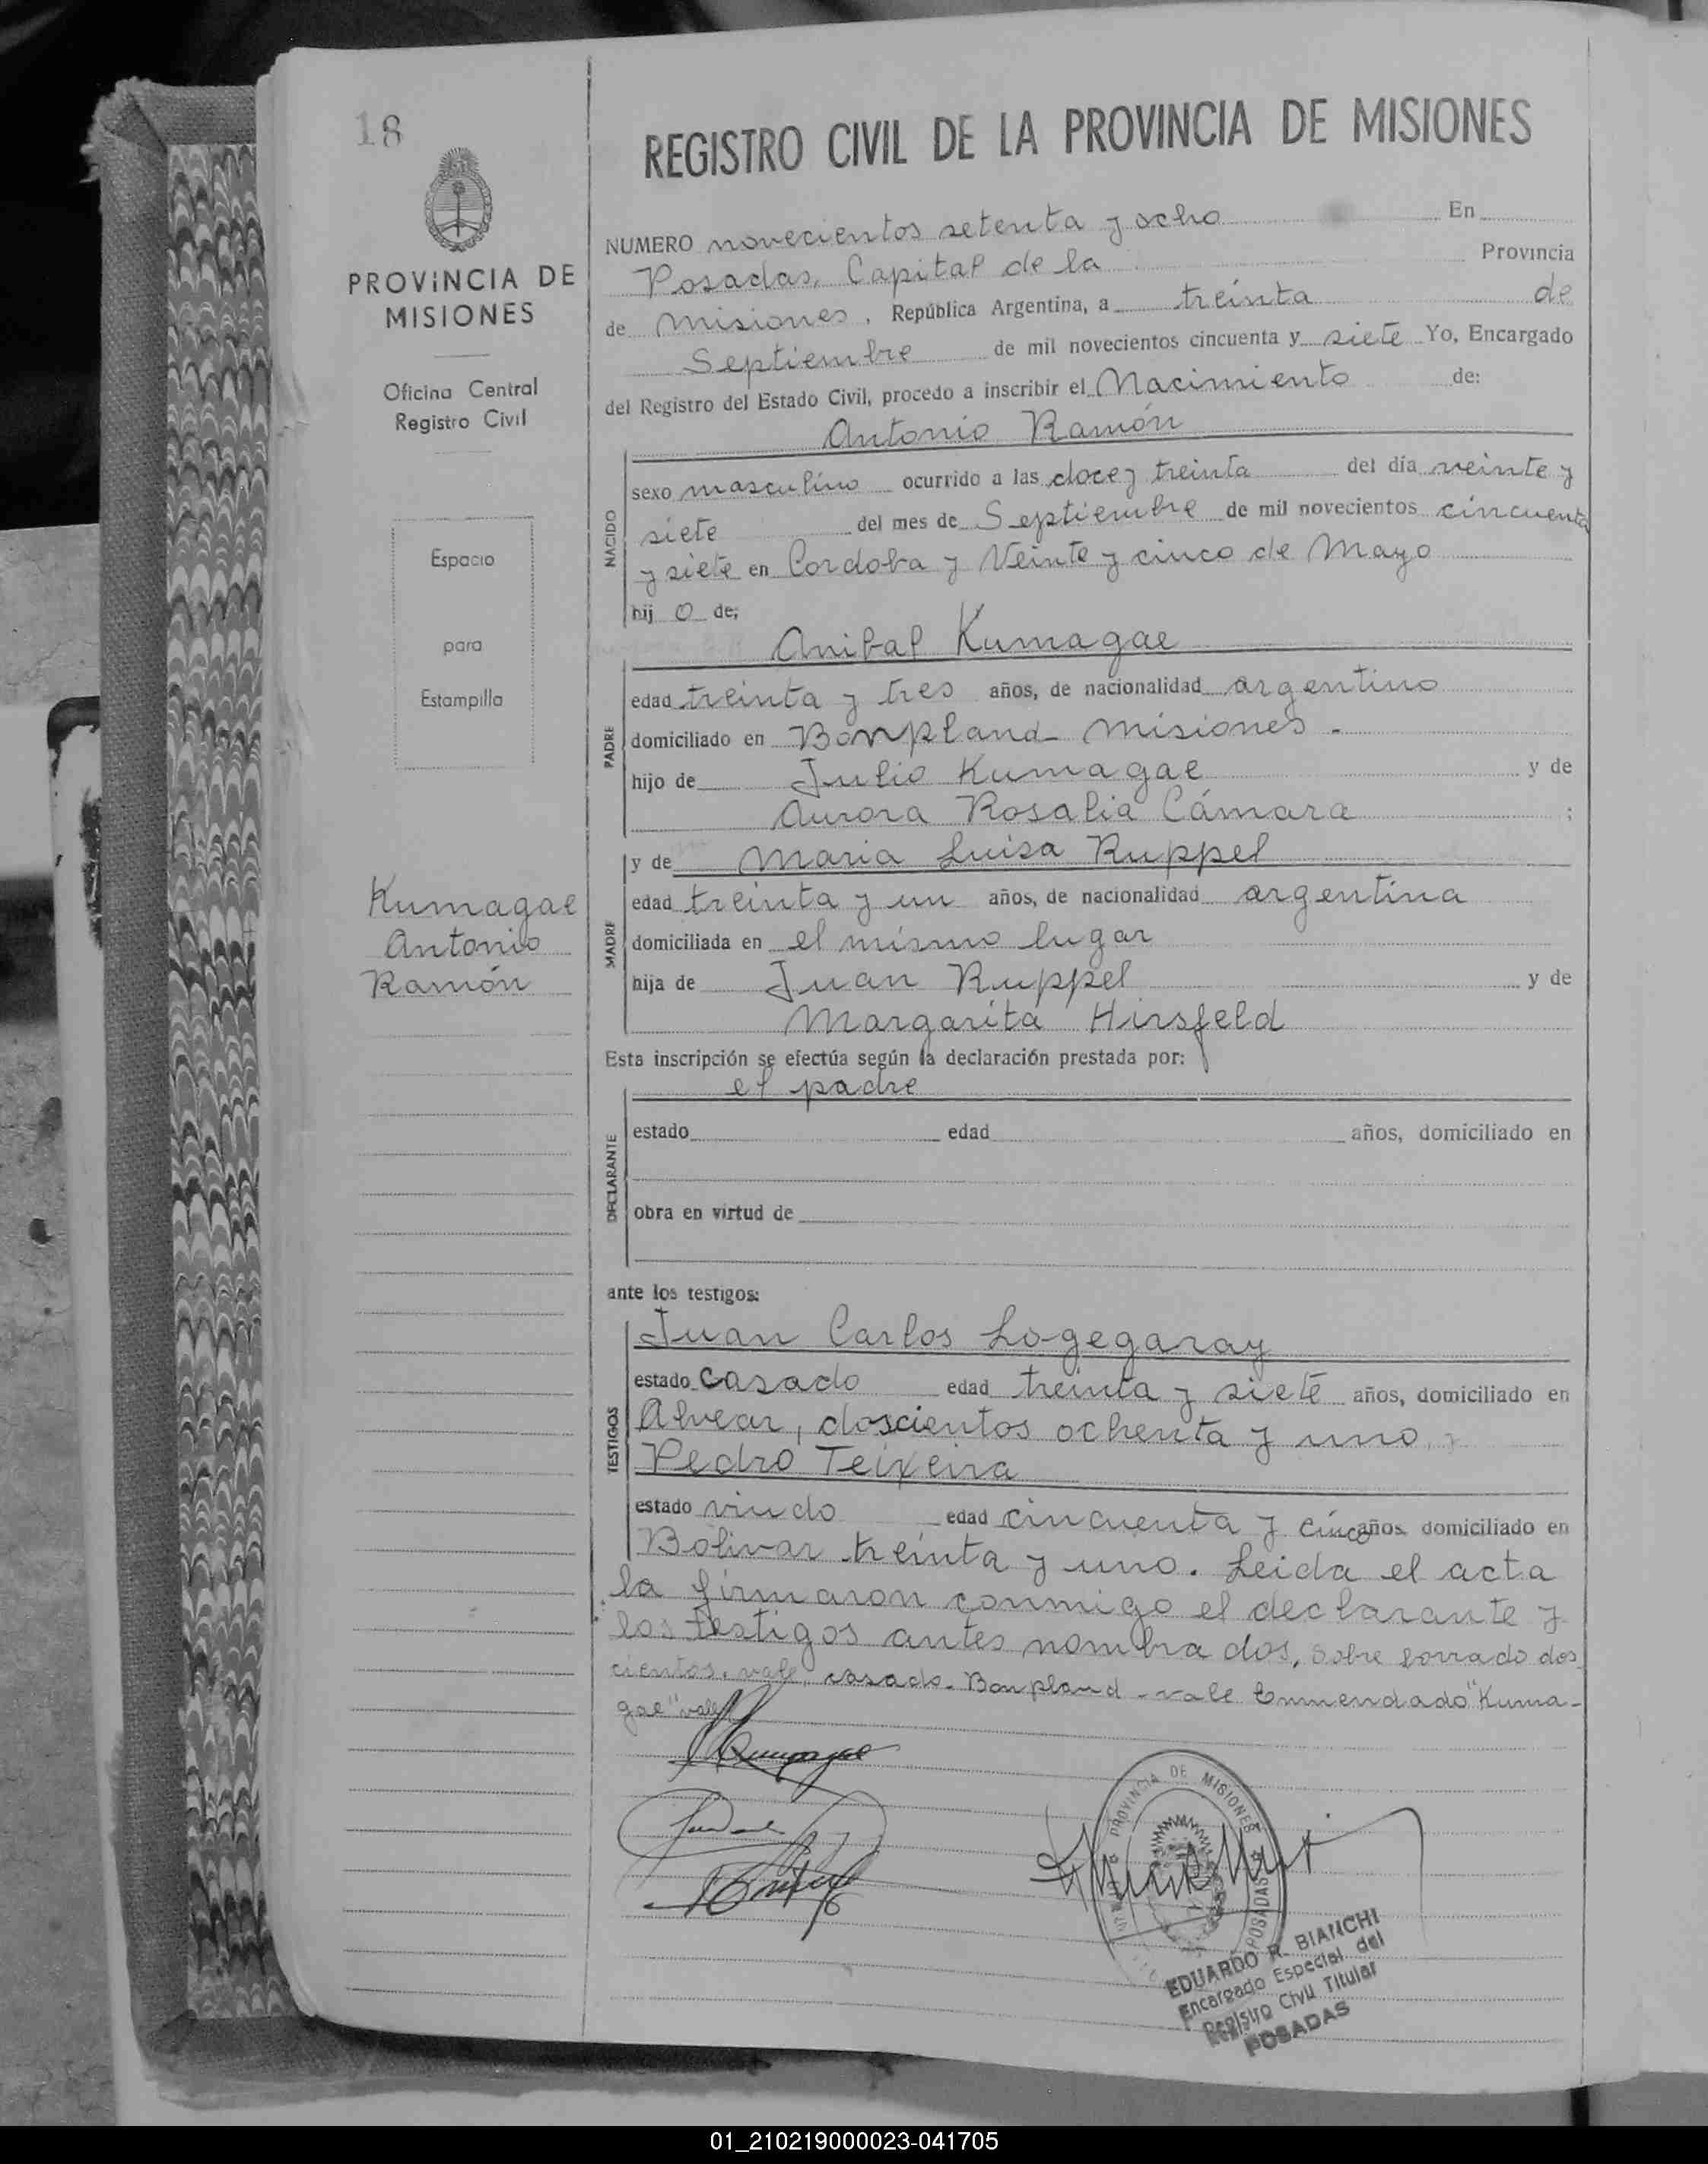 18
PROVINCIA DE
MISIONES
Oficina Central
Registro Civil
Espacio
para
Estampilla
Kumagae
Antonio
Ramón
REGISTRO CIVIL DE LA PROVINCIA DE MISIONES
NUMERO novecientos setenta y ocho En
Posadas, Capital de la Provincia
de Misiones, República Argentina, a treinta de
Septiembre de mil novecientos cincuenta y siete Yo, Encargado
del Registro del Estado Civil, procedo a inscribir el Nacimiento de:
Antonio Ramón
NACIDO
sexo masculino ocurrido a las doce y treinta del día veinte y
siete del mes de Septiembre de mil novecientos cincuenta
y siete en Cordoba y Veinte y cinco de Mayo
hij o de;
Anibal Kumagae
PADRE
edad treinta y tres años, de nacionalidad argentino
domiciliado en Bonpland - Misiones -
hijo de Julio Kumagae y de
Aurora Rosalia Cámara ;
y de Maria Luisa Ruppel
MADRE
edad treinta y un años, de nacionalidad argentina
domiciliada en el mismo lugar
hija de Juan Ruppel y de
Margarita Hirsfeld
Esta inscripción se efectúa según la declaración prestada por:
el padre
DECLARANTE
estado edad años, domiciliado en
obra en virtud de
ante los testigos:
TESTIGOS
Juan Carlos Logegaray
estado casado edad treinta y siete años, domiciliado en
Alvear, doscientos ochenta y uno y
Pedro Teixeira
estado viudo edad cincuenta y cinco años domiciliado en
Bolivar treinta y uno. Leida el acta
la firmaron conmigo el declarante y
los testigos antes nombrados, sobre borrado dos
cientos, vale, casado - Bonpland - vale Enmendado "Kuma-
gae" vale
Kumagae
PROVINCIA DE MISIONES
POSADAS
EDUARDO R. BIANCHI
Encargado Especial del
Registro Civil Titular
POSADAS
01_210219000023-041705